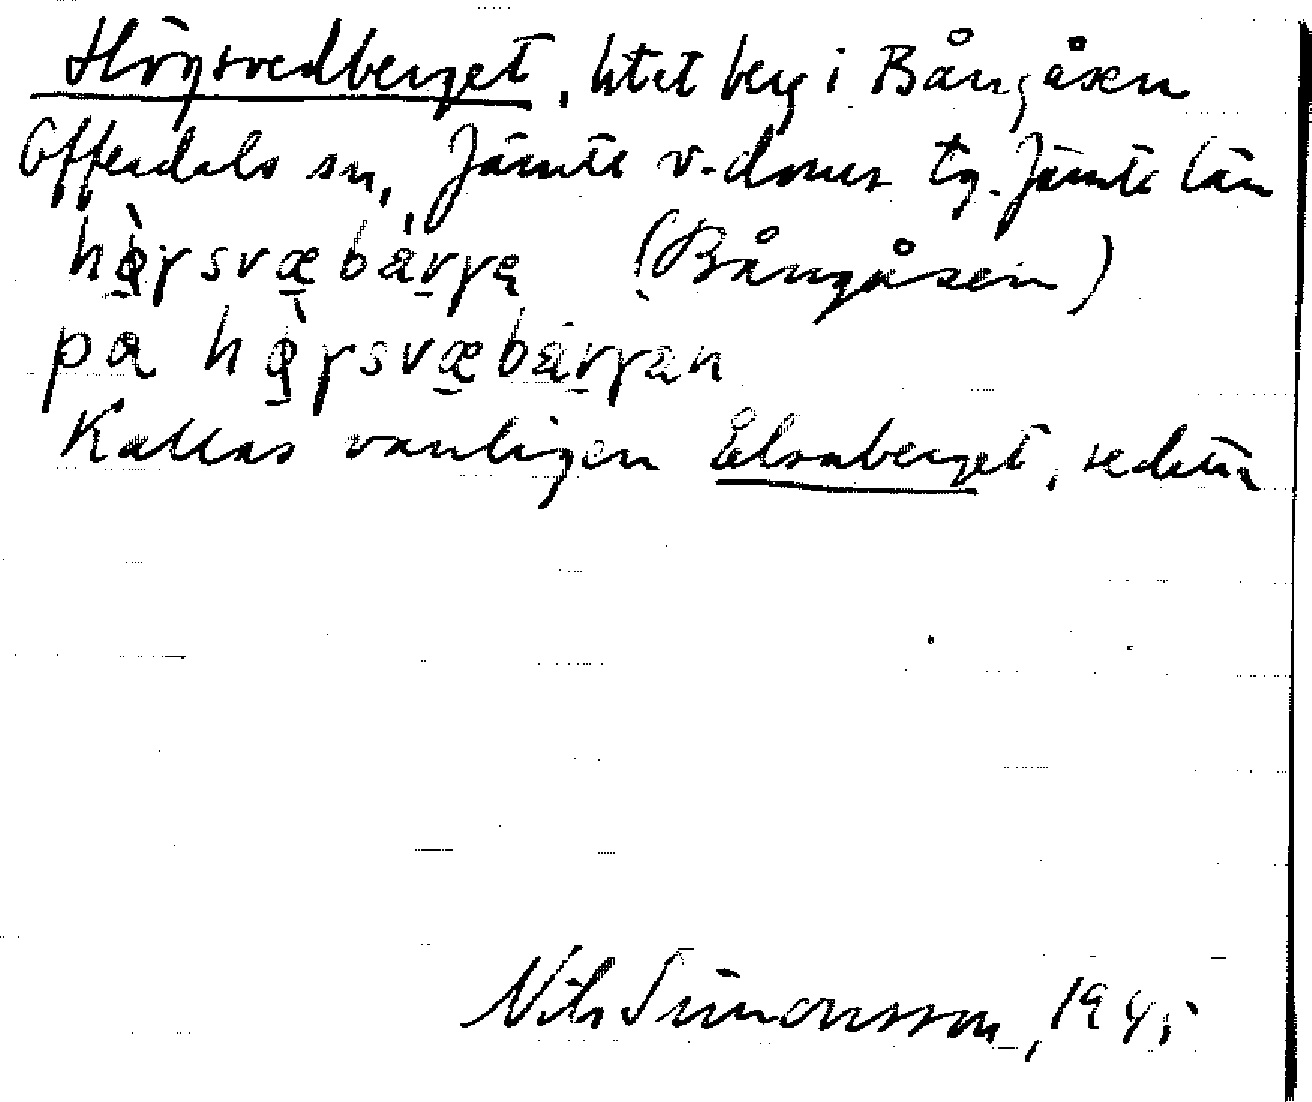 Högsvedberget, litet berg i Bångåsen
Offerdals sn, Jämtl v. doms tg. Jämtl län
(Bångåsen)
på
Kallas vanligen Elsaberget, se detta
Nils Simonsson, 1945